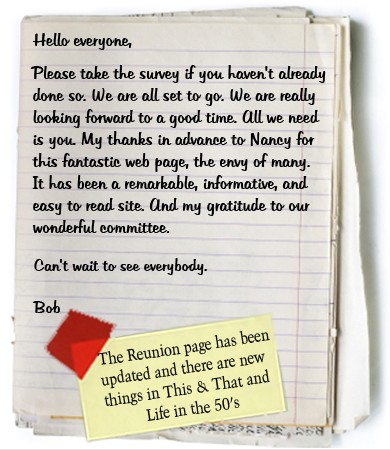 Hello everyone,
Please take the survey if you haven't already
done so. We are all set to go. We are really
looking forward to a good time. All we need
is you. My thanks in advance to Nancy for
this fantastic web page, the envy of many.
It has been a remarkable, informative, and
easy to read site. And my gratitude to our
wonderful committee.
Can't wait to see everybody.
Bob
The Reunion page has been
updated and there are new
things in This & That and
Life in the 50's